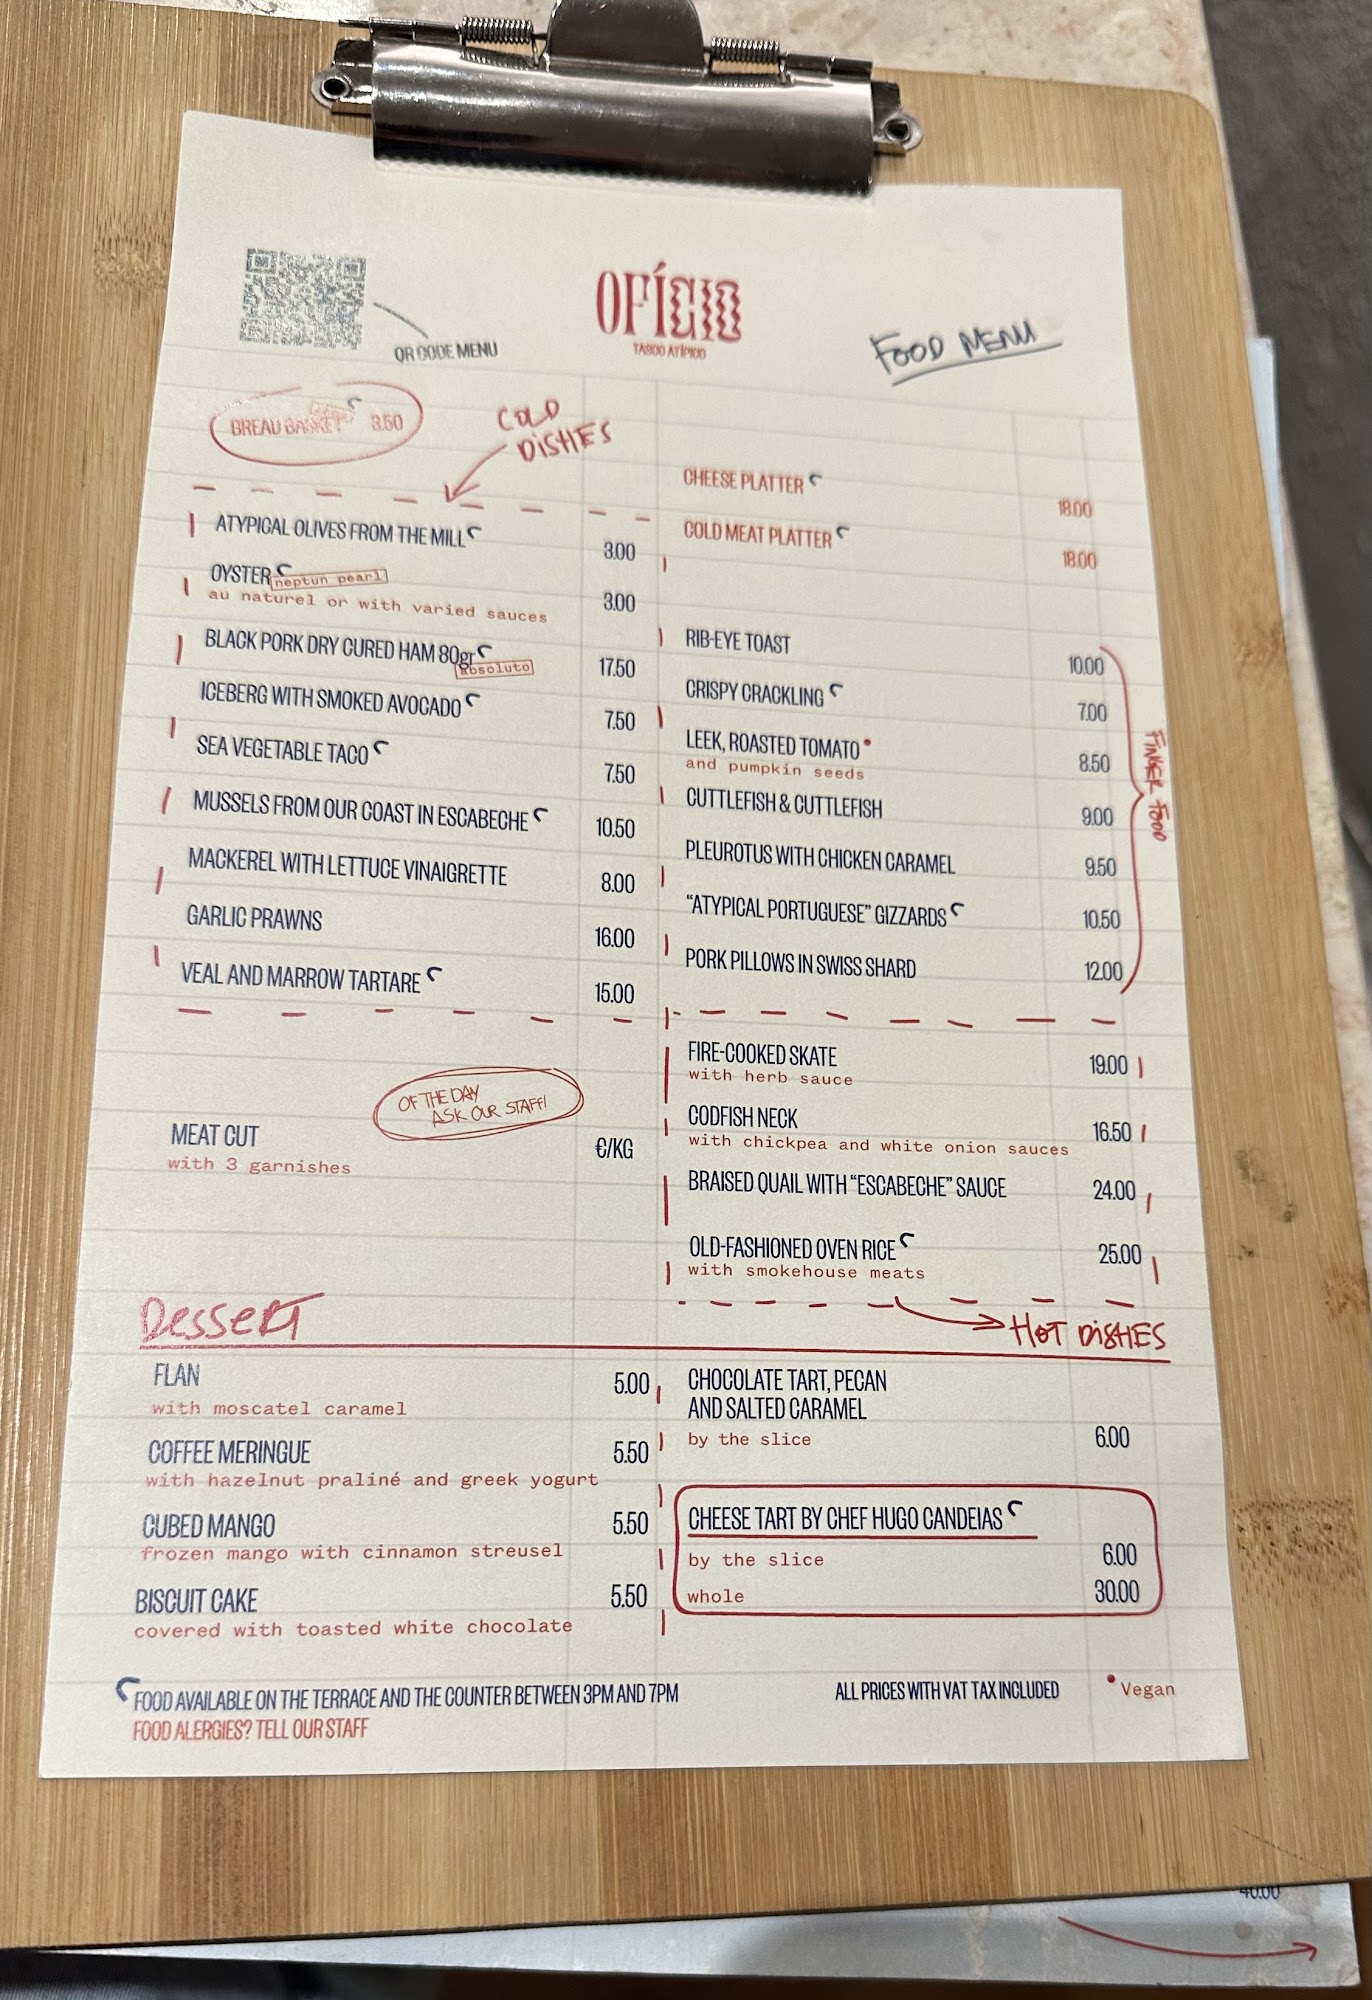 OFÍCIO
TASCO ATÍPICO
QR CODE MENU
FOOD MENU
BREAD BASKET 3.50
COLD
DISHES
ATYPICAL OLIVES FROM THE MILL 3.00
OYSTER neptun pearl
au naturel or with varied sauces 3.00
BLACK PORK DRY CURED HAM 80gr absoluto 17.50
ICEBERG WITH SMOKED AVOCADO 7.50
SEA VEGETABLE TACO 7.50
MUSSELS FROM OUR COAST IN ESCABECHE 10.50
MACKEREL WITH LETTUCE VINAIGRETTE 8.00
GARLIC PRAWNS 16.00
VEAL AND MARROW TARTARE 15.00
CHEESE PLATTER 18.00
COLD MEAT PLATTER 18.00
RIB-EYE TOAST 10.00
CRISPY CRACKLING 7.00
LEEK, ROASTED TOMATO
and pumpkin seeds 8.50
CUTTLEFISH & CUTTLEFISH 9.00
PLEUROTUS WITH CHICKEN CARAMEL 9.50
“ATYPICAL PORTUGUESE” GIZZARDS 10.50
PORK PILLOWS IN SWISS SHARD 12.00
FINGER FOOD
OF THE DAY
ASK OUR STAFF!
MEAT CUT €/KG
with 3 garnishes
FIRE-COOKED SKATE 19.00
with herb sauce
CODFISH NECK 16.50
with chickpea and white onion sauces
BRAISED QUAIL WITH “ESCABECHE” SAUCE 24.00
OLD-FASHIONED OVEN RICE 25.00
with smokehouse meats
HOT DISHES
Dessert
FLAN 5.00
with moscatel caramel
COFFEE MERINGUE 5.50
with hazelnut praliné and greek yogurt
CUBED MANGO 5.50
frozen mango with cinnamon streusel
BISCUIT CAKE 5.50
covered with toasted white chocolate
CHOCOLATE TART, PECAN
AND SALTED CARAMEL
by the slice 6.00
CHEESE TART BY CHEF HUGO CANDEIAS
by the slice 6.00
whole 30.00
FOOD AVAILABLE ON THE TERRACE AND THE COUNTER BETWEEN 3PM AND 7PM
FOOD ALERGIES? TELL OUR STAFF
ALL PRICES WITH VAT TAX INCLUDED
Vegan
40.00